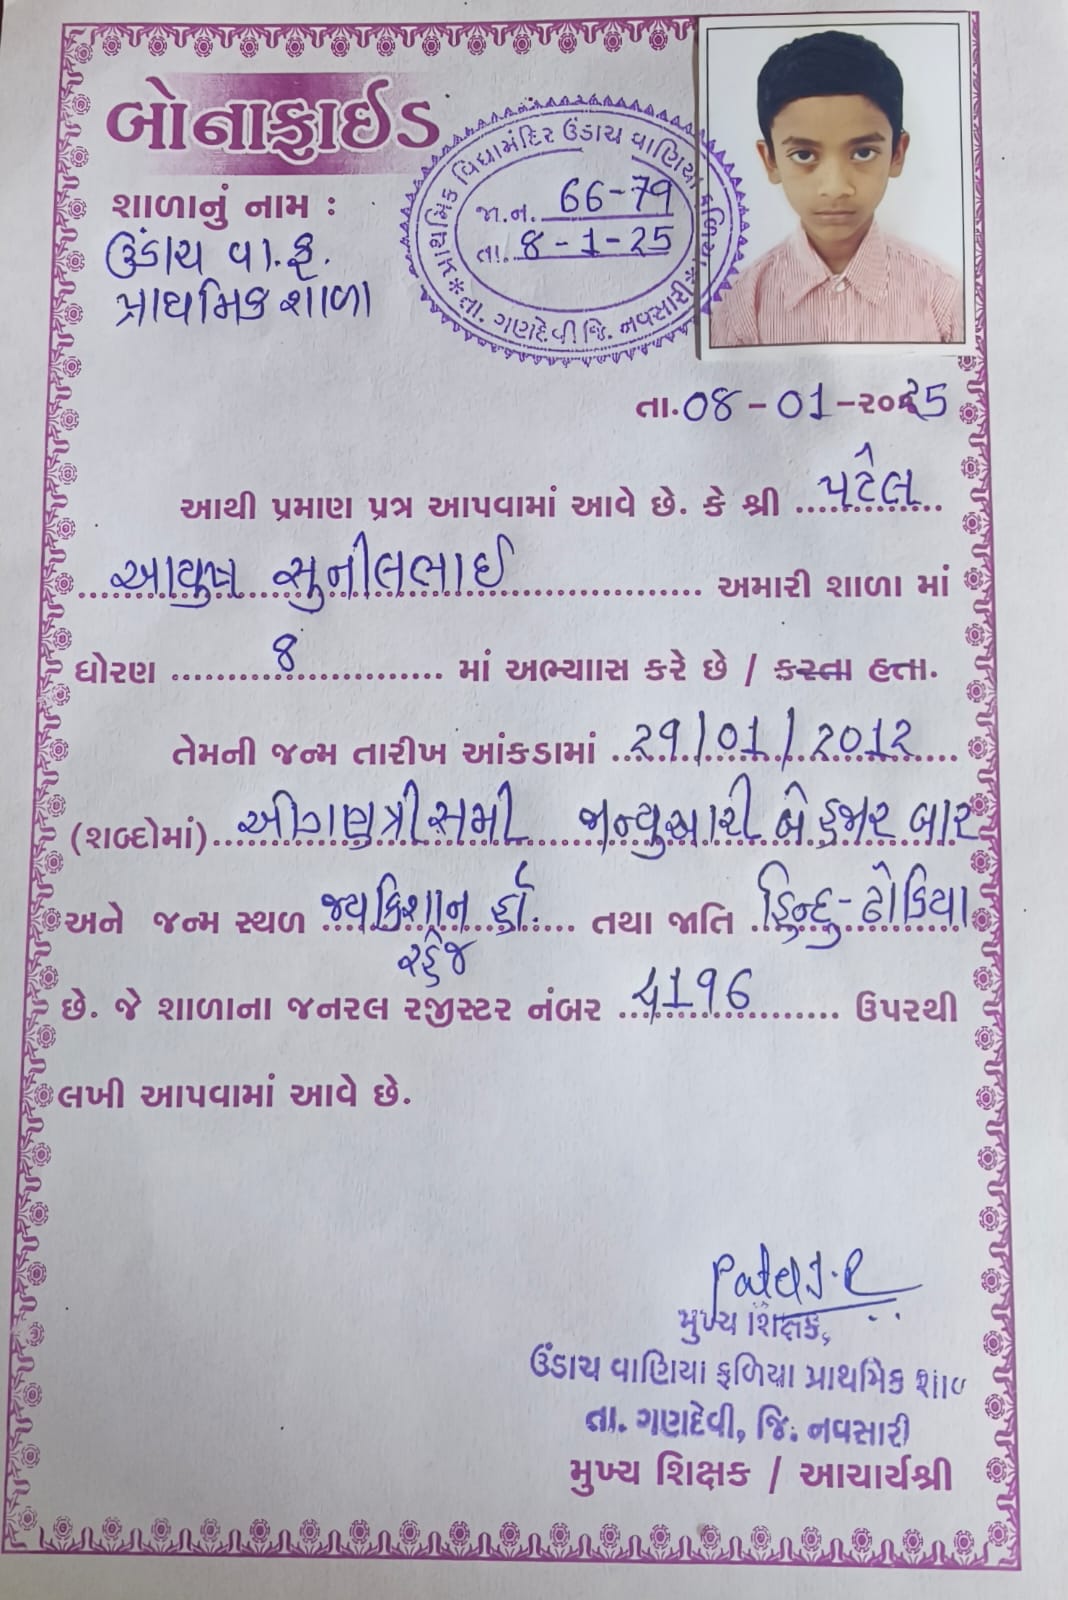 બોનાફાઈડ
શાળાનું નામ :
ઉંડાચ વા.ફ.
પ્રાથમિક શાળા
પ્રાથમિક વિદ્યામંદિર ઉંડાચ વાણિયા ફળિયા * તા. ગણદેવી જિ. નવસારી *
જા.ન. 66-79
તા. 8-1-25
તા. 08-01-૨૦25
આથી પ્રમાણ પ્રત્ર આપવામાં આવે છે. કે શ્રી પટેલ
આયુષ સુનીલભાઈ અમારી શાળા માં
ધોરણ 8 માં અભ્યાાસ કરે છે / કરતા હતા.
તેમની જન્મ તારીખ આંકડામાં 29/01/2012
(શબ્દોમાં) ઓગણત્રીસમી જાન્યુઆરી બે હજાર બાર
અને જન્મ સ્થળ જયકિશાન હૉ. તથા જાતિ હિન્દુ-ઢોડિયા
રહેજ
છે. જે શાળાના જનરલ રજીસ્ટર નંબર 4196 ઉપરથી
લખી આપવામાં આવે છે.
Patel J.R
મુખ્ય શિક્ષક,
ઉંડાચ વાણિયા ફળિયા પ્રાથમિક
તા. ગણદેવી, જિ. નવસારી
મુખ્ય શિક્ષક / આચાર્યશ્રી